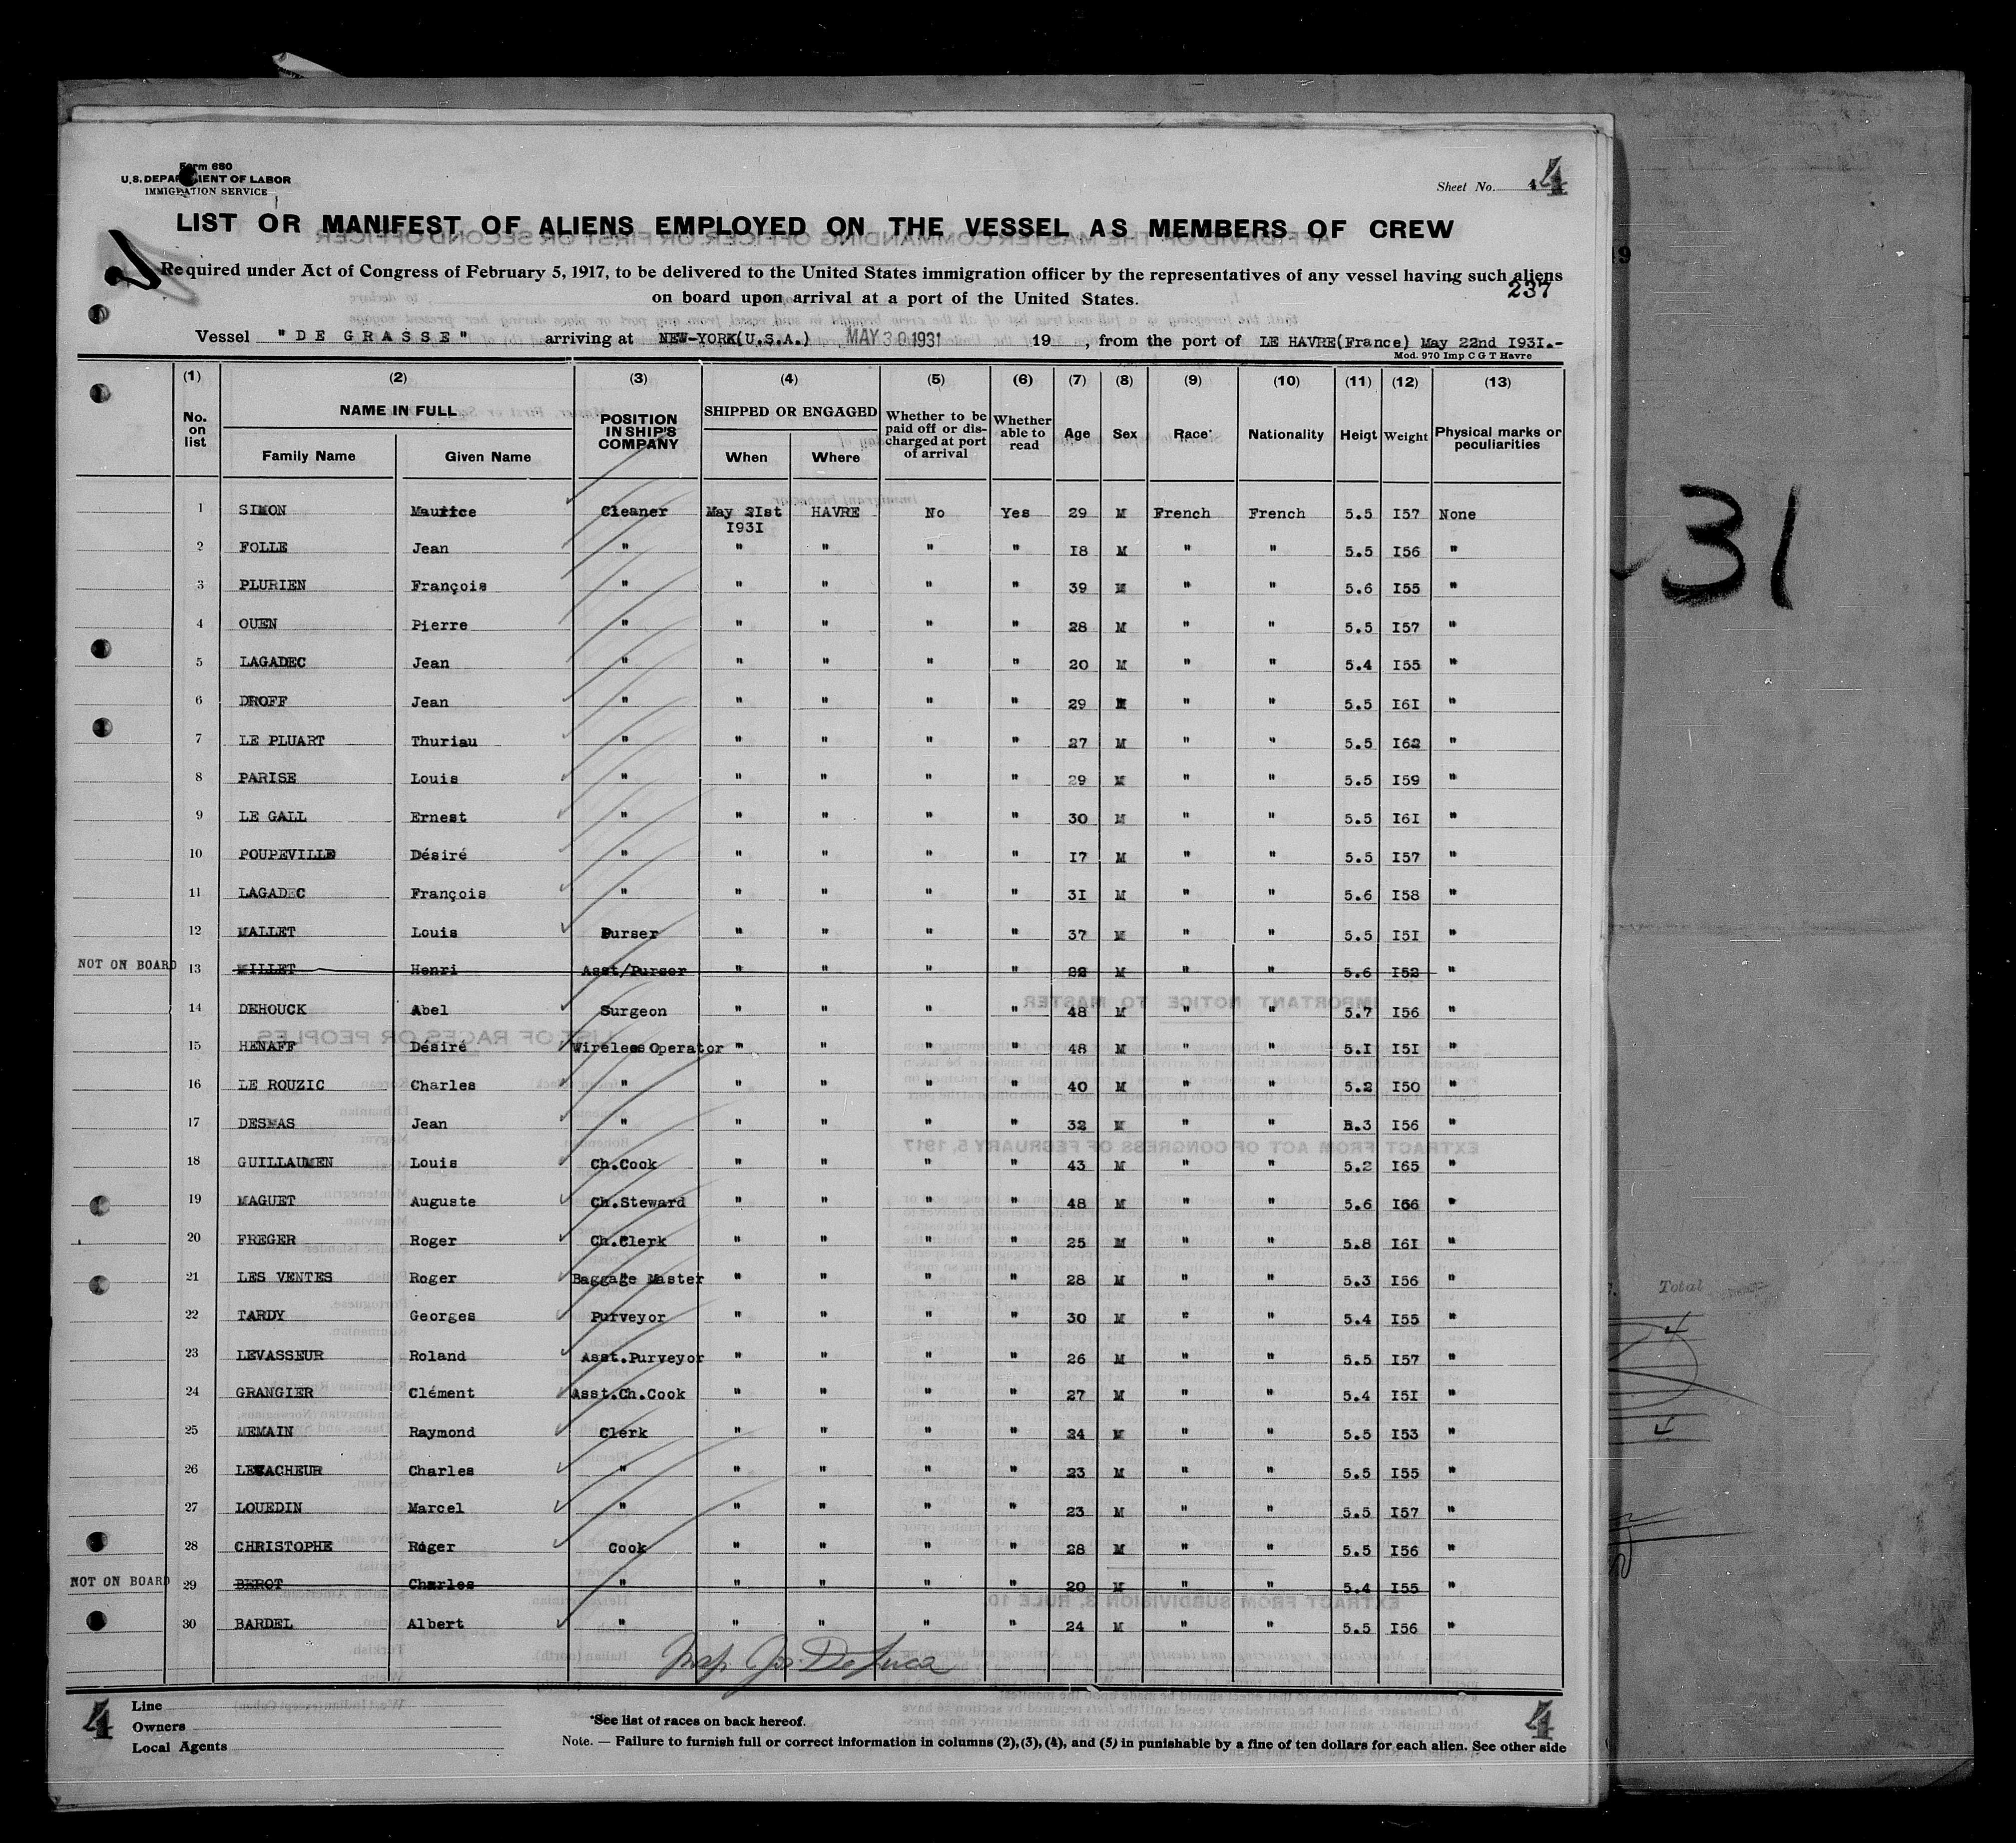 Form 680
U.S. DEPARTMENT OF LABOR
IMMIGRATION SERVICE
Sheet No. 4
LIST OR MANIFEST OF ALIENS EMPLOYED ON THE VESSEL AS MEMBERS OF CREW
Required under Act of Congress of February 5, 1917, to be delivered to the United States immigration officer by the representatives of any vessel having such aliens
on board upon arrival at a port of the United States.
237
Vessel "DE GRASSE" arriving at NEW-YORK(U.S.A.) MAY 30 1931 19 , from the port of LE HAVRE(France) May 22nd I93I.-
Mod. 970 Imp C G T Havre
(1) (2) (3) (4) (5) (6) (7) (8) (9) (10) (11) (12) (13)
No. on list NAME IN FULL Family Name Given Name POSITION IN SHIP'S COMPANY SHIPPED OR ENGAGED When Where Whether to be paid off or discharged at port of arrival Whether able to read Age Sex Race* Nationality Heigt Weight Physical marks or peculiarities
1 SIMON Maurice Cleaner May 2Ist I93I HAVRE No Yes 29 M French French 5.5 I57 None
2 FOLLE Jean " " " " " I8 M " " 5.5 I56 "
3 PLURIEN François " " " " " 39 M " " 5.6 I55 "
4 OUEN Pierre " " " " " 28 M " " 5.5 I57 "
5 LAGADEC Jean " " " " " 20 M " " 5.4 I55 "
6 DROFF Jean " " " " " 29 M " " 5.5 I6I "
7 LE PLUART Thuriau " " " " " 27 M " " 5.5 I62 "
8 PARISE Louis " " " " " 29 M " " 5.5 I59 "
9 LE GALL Ernest " " " " " 30 M " " 5.5 I6I "
10 POUPEVILLE Désiré " " " " " I7 M " " 5.5 I57 "
11 LAGADEC François " " " " " 3I M " " 5.6 I58 "
12 MALLET Louis Purser " " " " 37 M " " 5.5 I5I "
NOT ON BOARD 13 MILLET Henri Asst/Purser " " " " 22 M " " 5.6 I52 "
14 DEHOUCK Abel Surgeon " " " " 48 M " " 5.7 I56 "
15 HENAFF Désiré Wireless Operator " " " " 48 M " " 5.I I5I "
16 LE ROUZIC Charles " " " " " 40 M " " 5.2 I50 "
17 DESMAS Jean " " " " " 32 M " " 5.3 I56 "
18 GUILLAUMEN Louis Ch.Cook " " " " 43 M " " 5.2 I65 "
19 MAGUET Auguste Ch.Steward " " " " 48 M " " 5.6 I66 "
20 FREGER Roger Ch.Clerk " " " " 25 M " " 5.8 I6I "
21 LES VENTES Roger Baggage Master " " " " 28 M " " 5.3 I56 "
22 TARDY Georges Purveyor " " " " 30 M " " 5.4 I55 "
23 LEVASSEUR Roland Asst.Purveyor " " " " 26 M " " 5.5 I57 "
24 GRANGIER Clément Asst.Ch.Cook " " " " 27 M " " 5.4 I5I "
25 MEMAIN Raymond Clerk " " " " 24 M " " 5.5 I53 "
26 LEVACHEUR Charles " " " " " 23 M " " 5.5 I55 "
27 LOUEDIN Marcel " " " " " 23 M " " 5.5 I57 "
28 CHRISTOPHE Roger Cook " " " " 28 M " " 5.5 I56 "
NOT ON BOARD 29 BEROT Charles " " " " " 20 M " " 5.4 I55 "
30 BARDEL Albert " " " " " 24 M " " 5.5 I56 "
Insp. Jos. DeLuca
4 Line
Owners
Local Agents
*See list of races on back hereof.
Note. — Failure to furnish full or correct information in columns (2),(3),(4), and (5) in punishable by a fine of ten dollars for each alien. See other side
4
31
Total